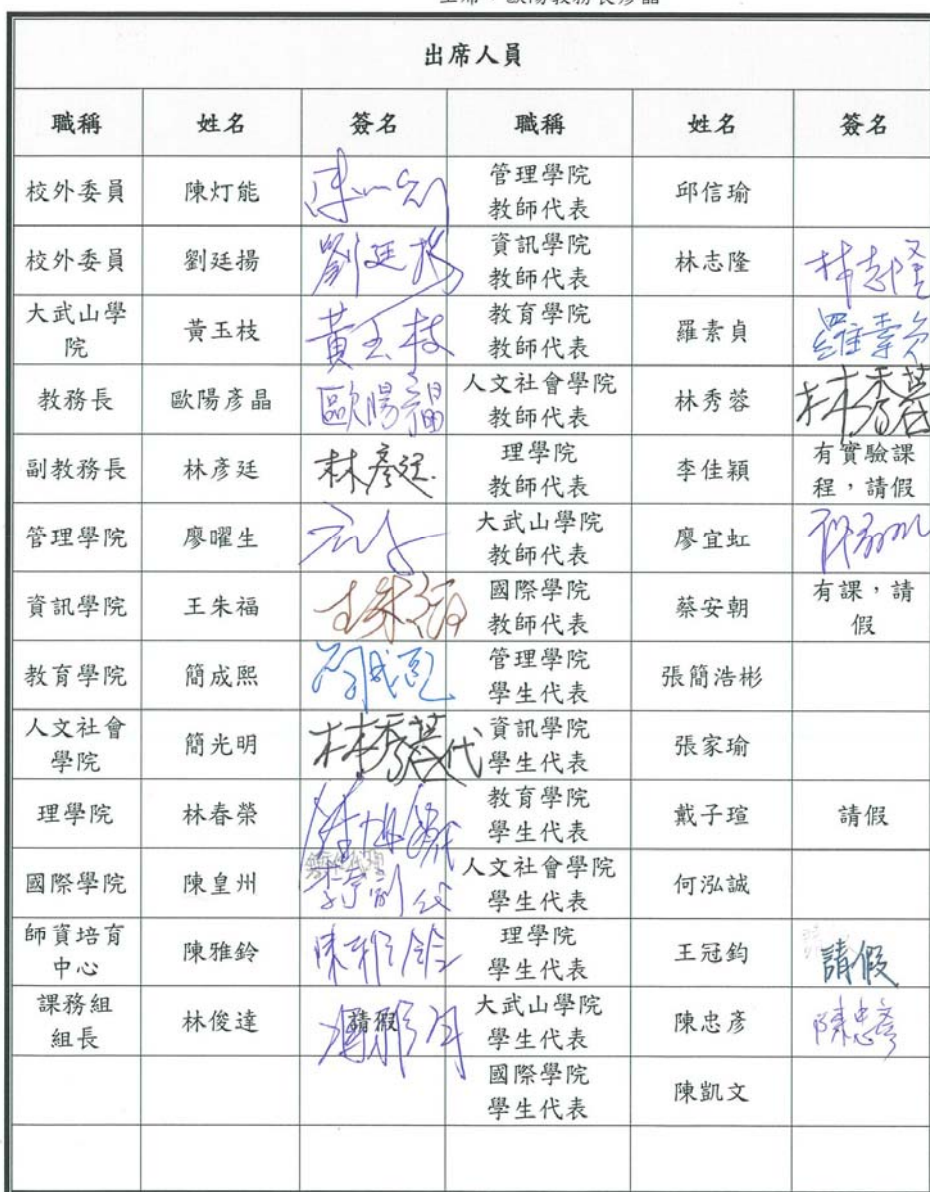 主席：歐陽教務長彥晶
出席人員
職稱 姓名 簽名 職稱 姓名 簽名
校外委員 陳灯能 管理學院 教師代表 邱信瑜
校外委員 劉廷揚 劉廷揚 資訊學院 教師代表 林志隆 林志隆
大武山學院 黃玉枝 黃玉枝 教育學院 教師代表 羅素貞 羅素貞
教務長 歐陽彥晶 人文社會學院 教師代表 林秀蓉 林秀蓉
副教務長 林彥廷 林彥廷 理學院 教師代表 李佳穎 有實驗課程，請假
管理學院 廖曜生 大武山學院 教師代表 廖宜虹
資訊學院 王朱福 王朱福 國際學院 教師代表 蔡安朝 有課，請假
教育學院 簡成熙 簡成熙 管理學院 學生代表 張簡浩彬
人文社會學院 簡光明 林秀蓉代 資訊學院 學生代表 張家瑜
理學院 林春榮 教育學院 學生代表 戴子瑄 請假
國際學院 陳皇州 人文社會學院 學生代表 何泓誠
師資培育中心 陳雅鈴 陳雅鈴 理學院 學生代表 王冠鈞 請假
課務組組長 林俊達 請假 大武山學院 學生代表 陳忠彥 陳忠彥
國際學院 學生代表 陳凱文